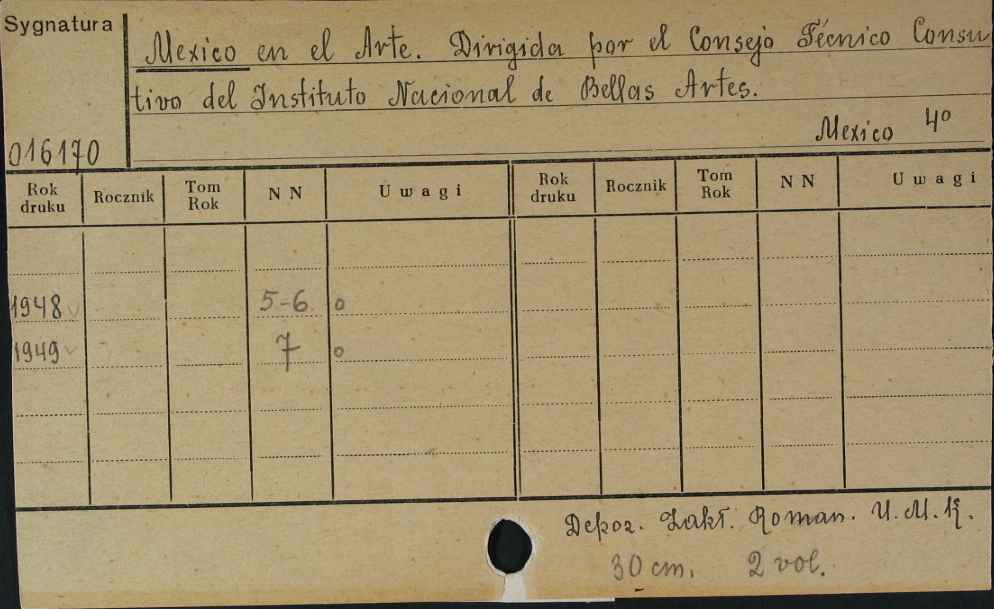 Sygnatura
Mexico en el Arte. Dirigida por el Consejo Técnico Consu
tivo del Instituto Nacional de Bellas Artes.
Mexico 4°
016170
Rok druku Rocznik Tom Rok N N Uwagi Rok druku Rocznik Tom Rok N N Uwagi
1948 5-6 o
1949 7 o
Depoz. Zakł. Roman. U.M.K.
30 cm. 2 vol.